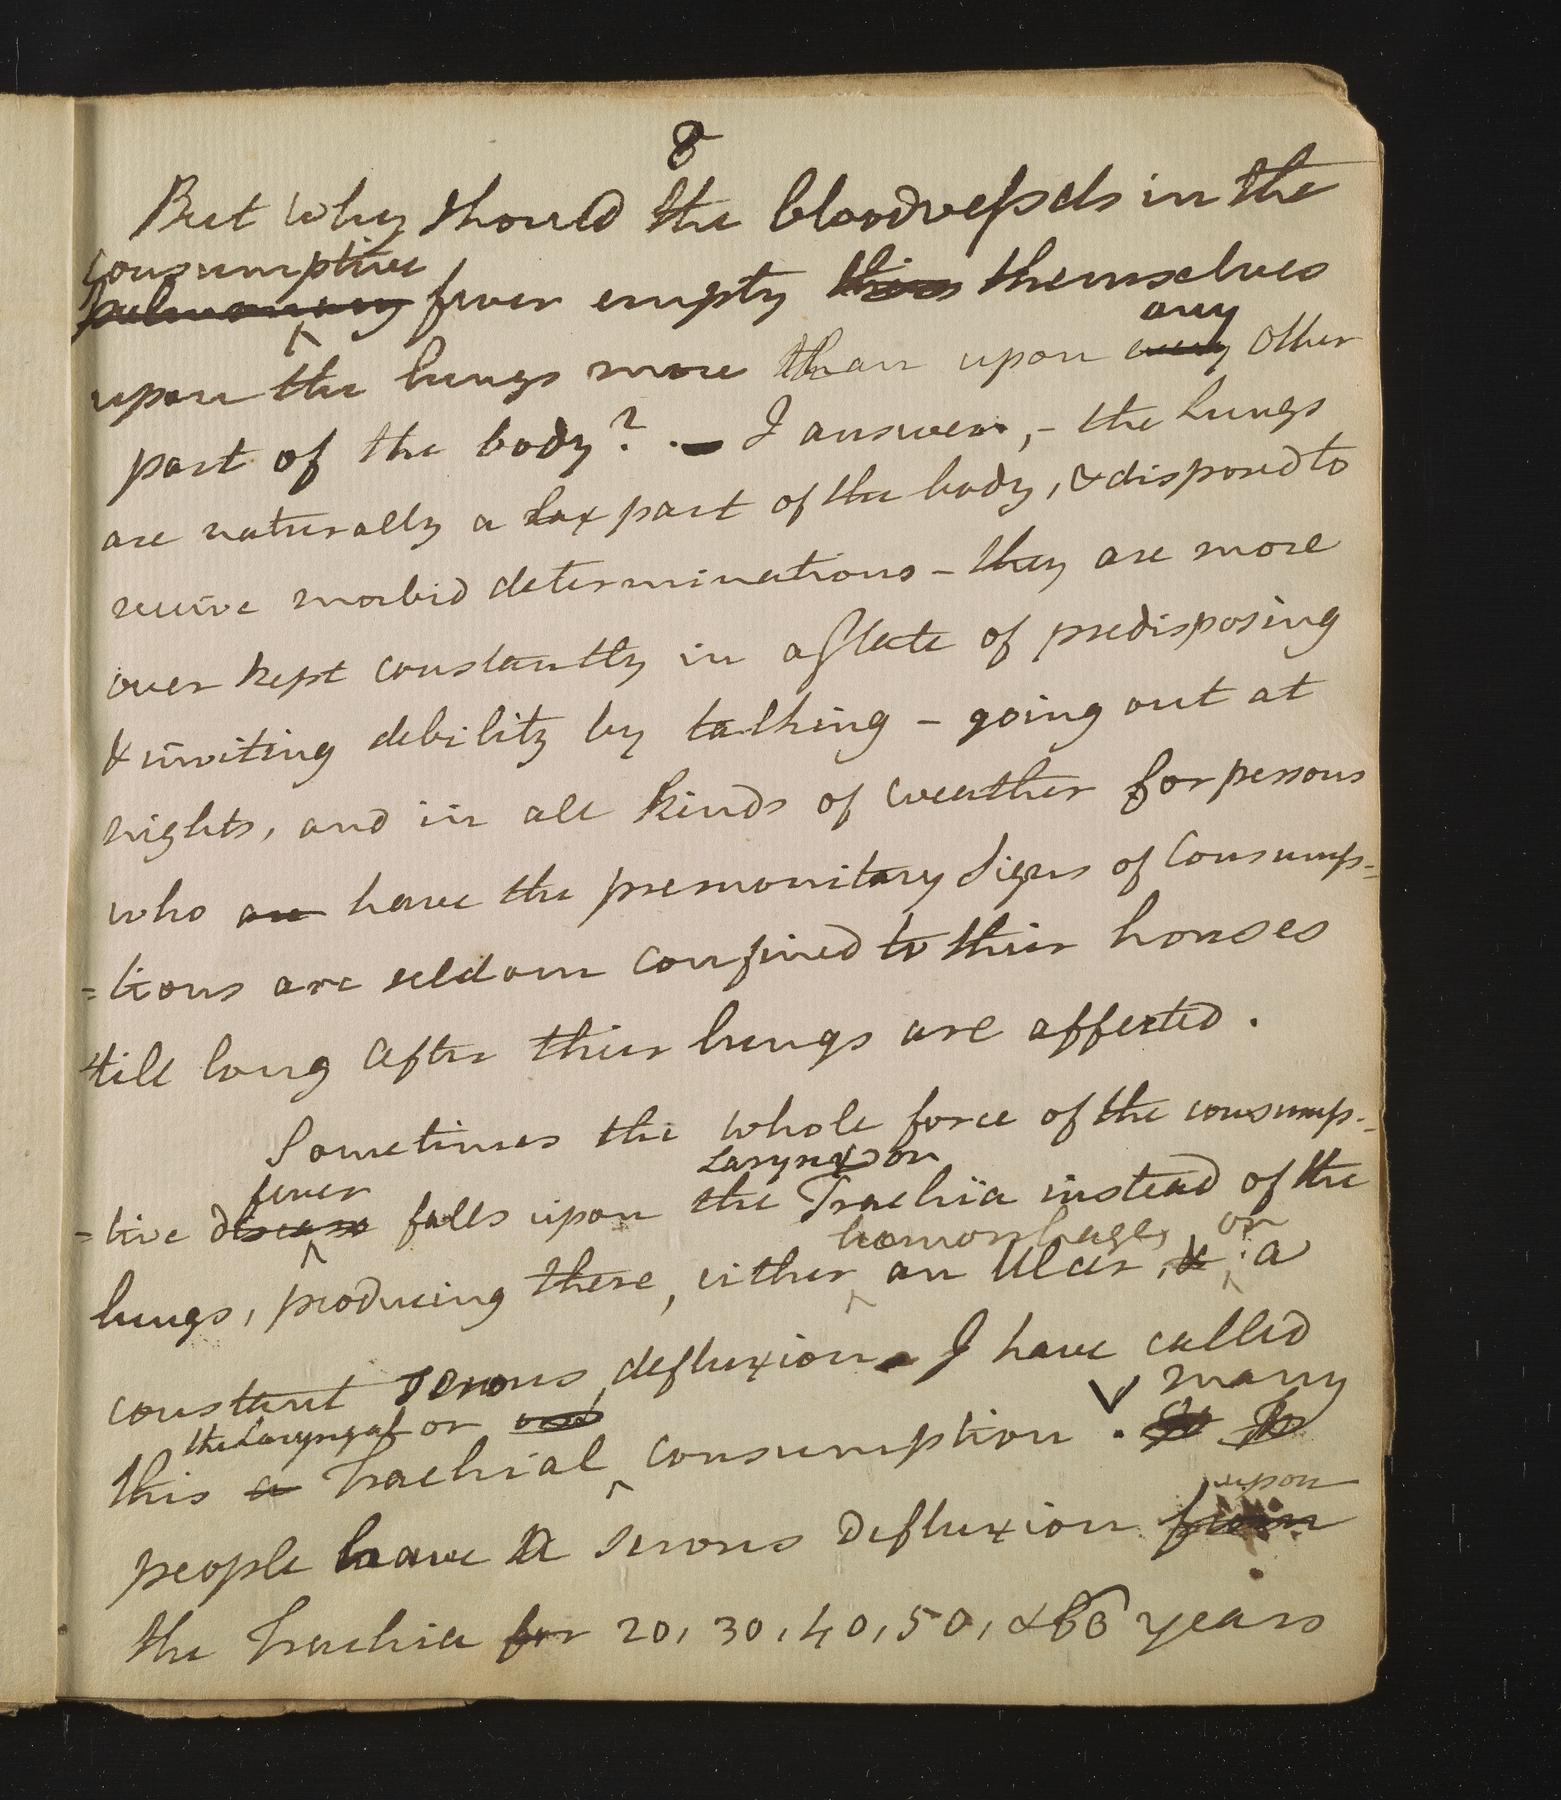 8
But why should the bloodvessels in the
consumptive
pulmonary fever empty thems themselves
any
upon the lungs more than upon every other
part of the body? — I answer, - the Lungs
are naturally a lax part of the body, & disposed to
receive morbid determinations - they are more
over kept constantly in a state of predisposing
& inviting debility by talking - going out at
nights, and in all kinds of weather for persons
who are have the premonitary signs of Consump=
=tions are seldom confined to their houses
till long after their lungs are affected.
Sometimes the whole force of the consump=
fever Larynx or
=tive disease falls upon the Trachia instead of the
hemorrhage, or
lungs, producing there, either an Ulcer, & a
constant serous defluxion - I have called
the Laryngal or many
this a Trachial consumption.
upon
people have a serous defluxion from
the Trachia for 20, 30, 40, 50, & 60 years